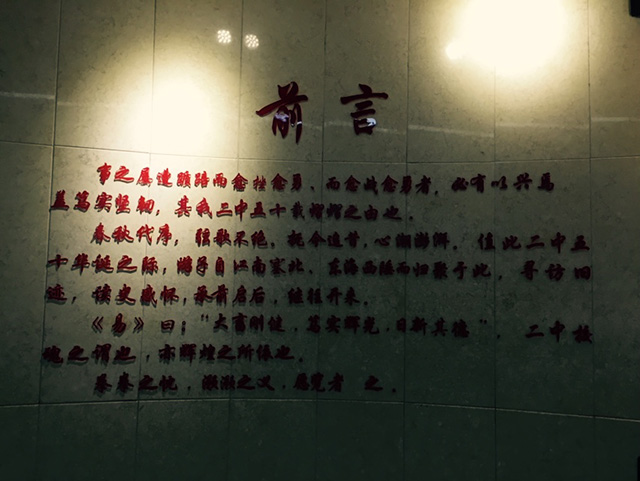 前言
事之屡遭颠踣而愈挫愈勇、而愈战愈勇者，必有以兴焉
盖笃实坚韧，其我二中五十载熠熠之由也。
春秋代序，弦歌不绝。抚今追昔，心潮澎湃。值此二中五
十华诞之际，游子自江南塞北、东海西陲而归聚于此，寻访旧
迹，读史感怀，承前启后，继往开来。
《易》曰：“大畜刚健，笃实辉光，日新其德”，二中校
魂之谓也，亦辉煌之所依也。
拳拳之忱，淑淑之文，愿览者 之。